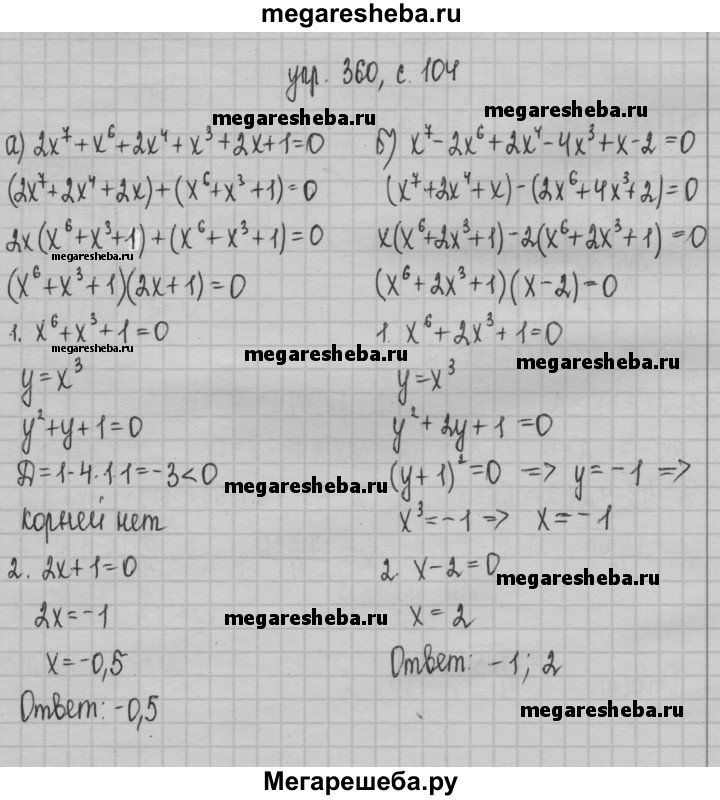 megaresheba.ru
упр. 360, с. 104
megaresheba.ru
а) 2x⁷+x⁶+2x⁴+x³+2x+1=0
(2x⁷+2x⁴+2x)+(x⁶+x³+1)=0
2x(x⁶+x³+1)+(x⁶+x³+1)=0
megaresheba.ru
(x⁶+x³+1)(2x+1)=0
1. x⁶+x³+1=0
megaresheba.ru
y=x³
y²+y+1=0
Д=1-4·1·1=-3<0
корней нет
2. 2x+1=0
2x=-1
x=-0,5
Ответ: -0,5
megaresheba.ru
б) x⁷-2x⁶+2x⁴-4x³+x-2=0
(x⁷+2x⁴+x)-(2x⁶+4x³+2)=0
x(x⁶+2x³+1)-2(x⁶+2x³+1)=0
(x⁶+2x³+1)(x-2)=0
1. x⁶+2x³+1=0
megaresheba.ru
megaresheba.ru
y=x³
y²+2y+1=0
(y+1)²=0 => y=-1 =>
megaresheba.ru
x³=-1 => x=-1
2. x-2=0
megaresheba.ru
x=2
megaresheba.ru
Ответ: -1; 2
megaresheba.ru
Мегарешеба.ру